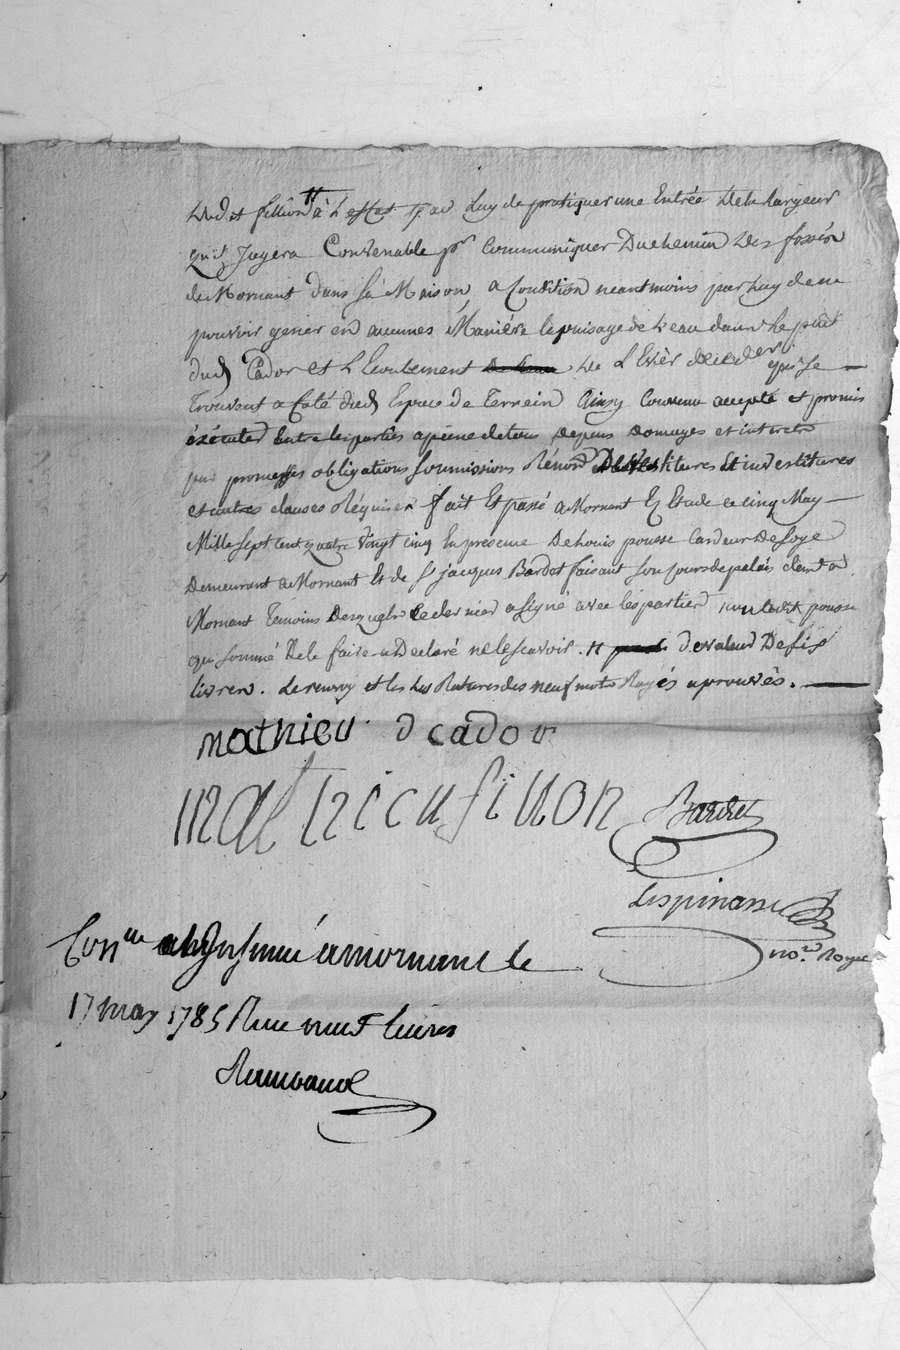 dud.t fillion # à L'effet par Luy de pratiquer une Entrée De la largeur
qu'il Jugera Convenable pr Communiquer Du chemin des fossés
de Mornant dans sa Maison a Condition neantmoins par luy de ne
pouvoir gener en aucunes Manière le puisage de L'eau dans le puit
dud Cador et L'Ecoulement de L'Evier d'icelui qui se
Trouvent a Coté dud Espace de Terrein Ainsy Convenu accepté et promis
éxécuter Entre les parties a peine de tous depens domages et interets
par promesses obligations soumissions Rénon Devestitures Et investitures
et autres clauses Réquises fait Et passé a Mornant En Etude le cinq May
Mille Sept Cent quatre Vingt Cinq En présence De Louis pousse Cardeur De soye
Demeurant a Mornant Et de Sr jacques Bardot faisant son jours de palais demt a
Mornant Temoins Desquels le dernier a signé avec les parties non ledit pousse
qui sommé De le faire a Declaré ne le scavoir. # de valeur De six
livres. Le renvoy et les Ratures des neuf mots Rayés aprouvés.
mathieu d cador
mathieu fillion Bardot
Lespinasse
no.re Royal
Con.lle et Insinué a mornant le
17 may 1785 Reçu neuf livres
Raimbaud